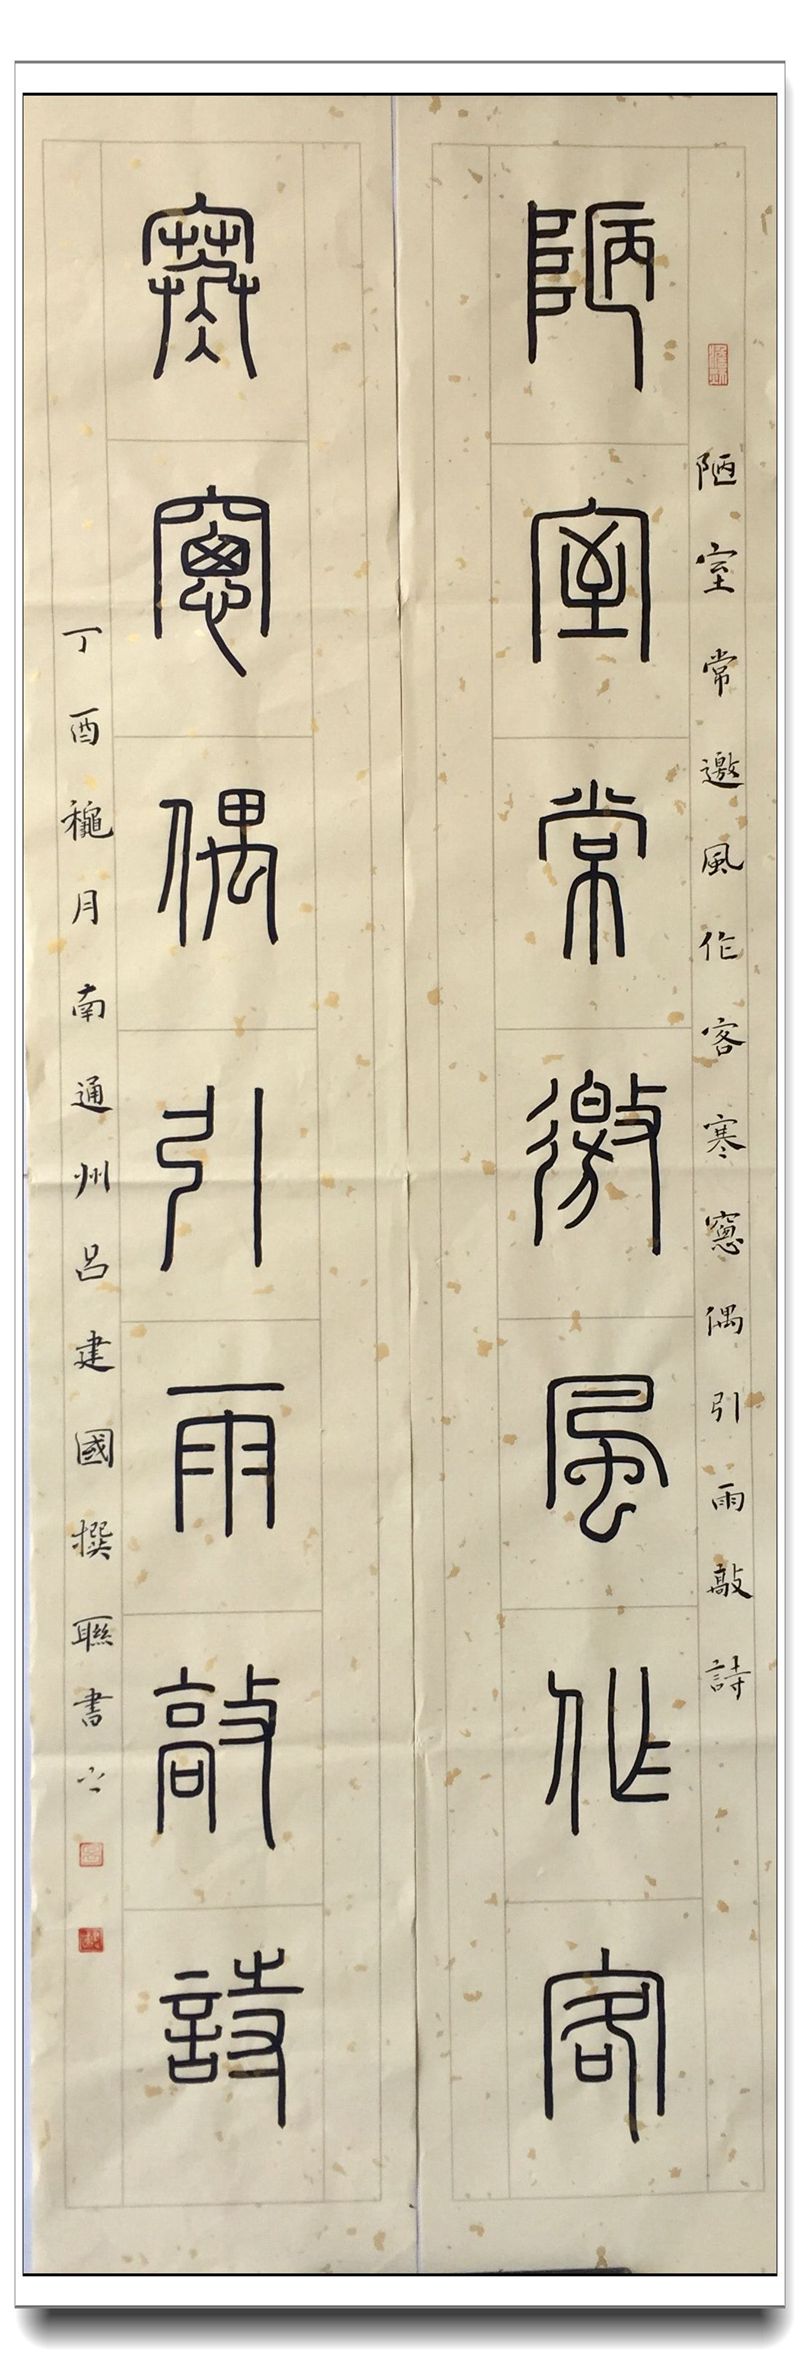 陋室常邀風作客寒窻偶引雨敲詩
陋室常邀風作客
寒窻偶引雨敲詩
丁酉龝月南通州呂建國撰聯書之